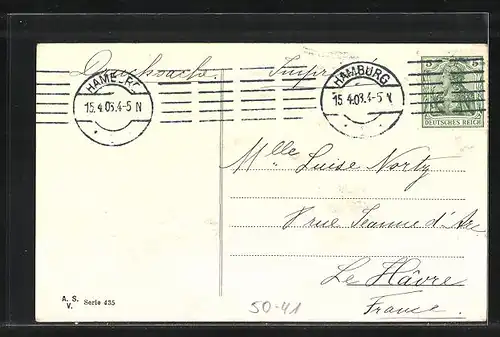 Drucksache. Imprimé
HAMBURG
15.4.03.4-5 N
HAMBURG
15.4.03.4-5 N
5 5
DEUTSCHES REICH
Mlle Luise Nortz
8 rue Jeanne d'Arc
Le Hâvre
France.
A. S. V. Serie 435
50-41